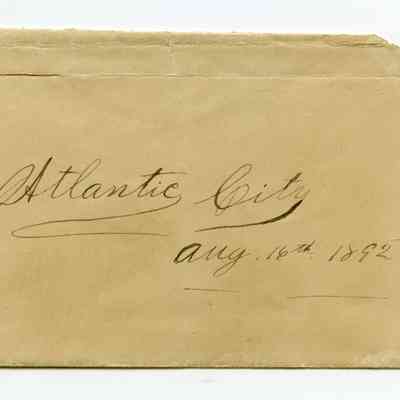 Atlantic City
Aug. 16th 1892